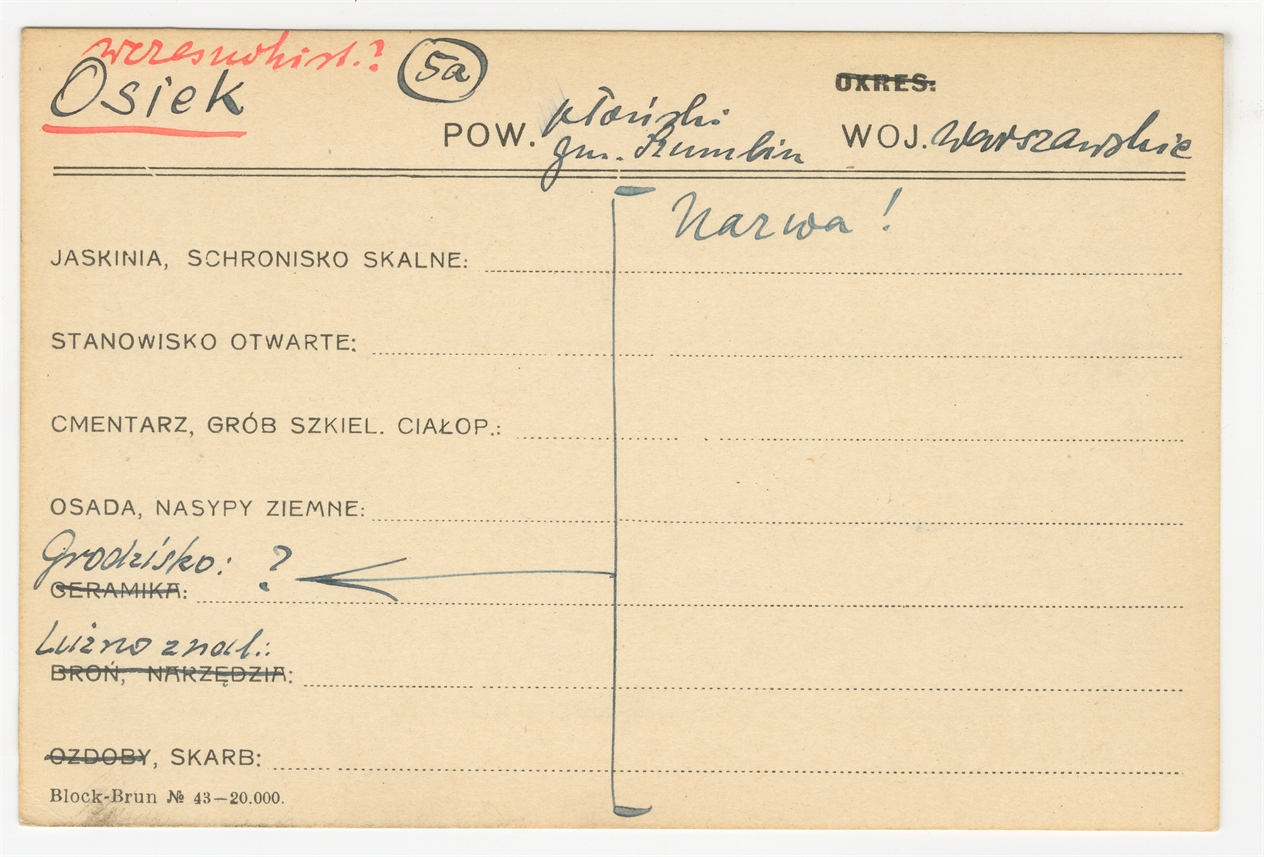 wczesnohist.?
Osiek
5a
OKRES:
POW. płoński WOJ. Warszawskie
gm. Kumlin
Narwa!
JASKINIA, SCHRONISKO SKALNE:
STANOWISKO OTWARTE:
CMENTARZ, GRÓB SZKIEL. CIAŁOP.:
OSADA, NASYPY ZIEMNE:
Grodzisko: ?
CERAMIKA:
Luźno znal.:
BROŃ, NARZĘDZIA:
OZDOBY, SKARB:
Block-Brun № 43—20.000.